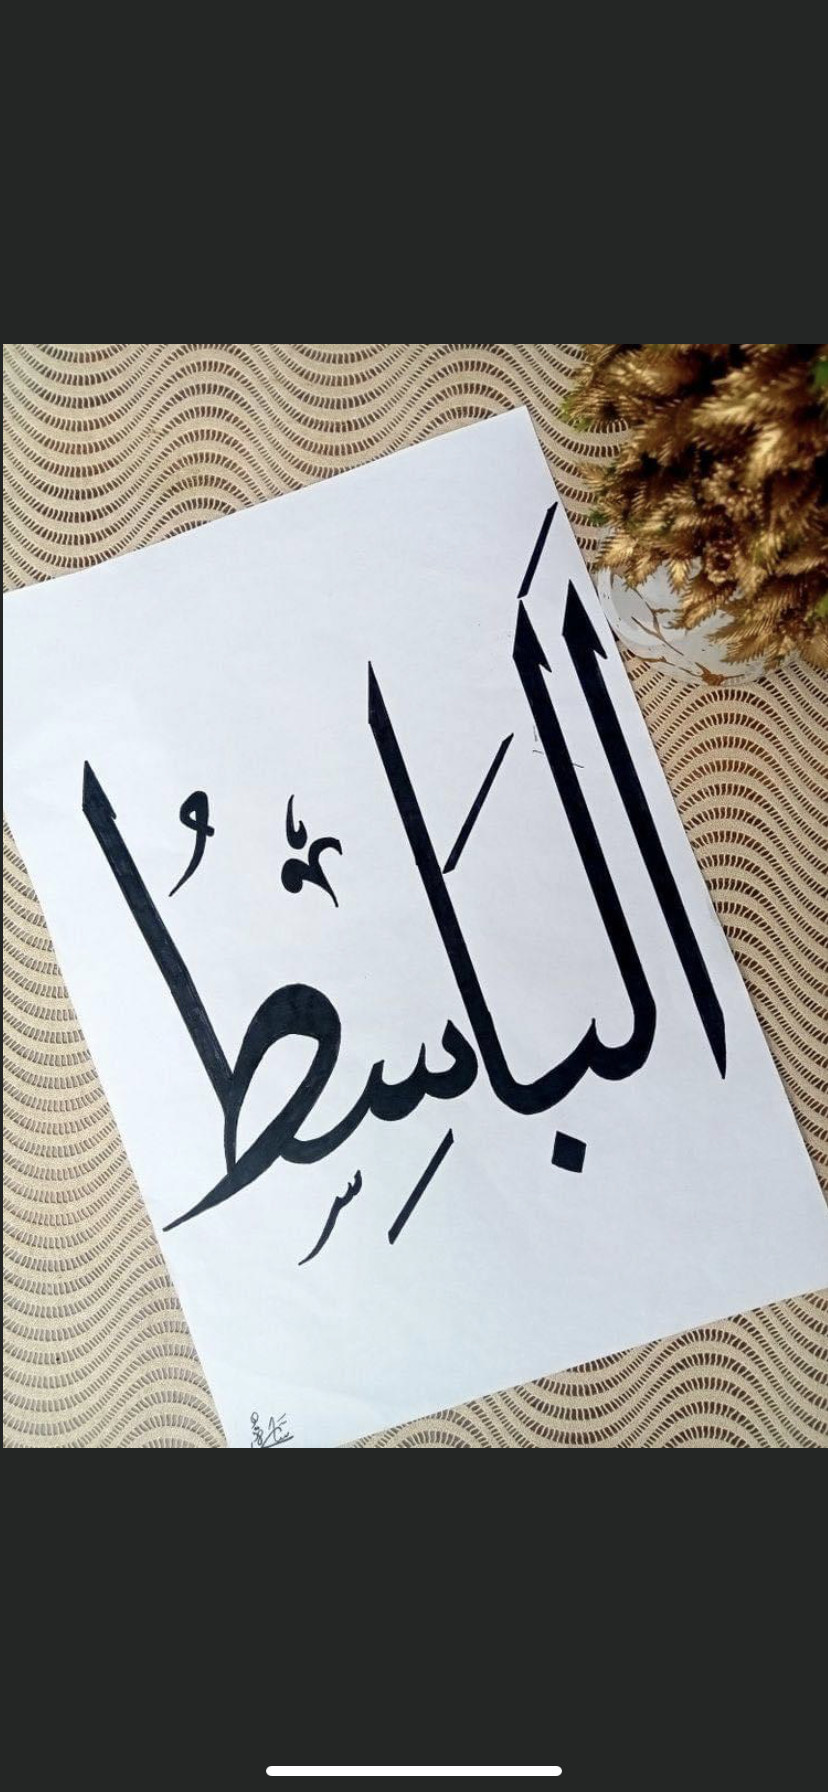 اَلبَاسِطُ